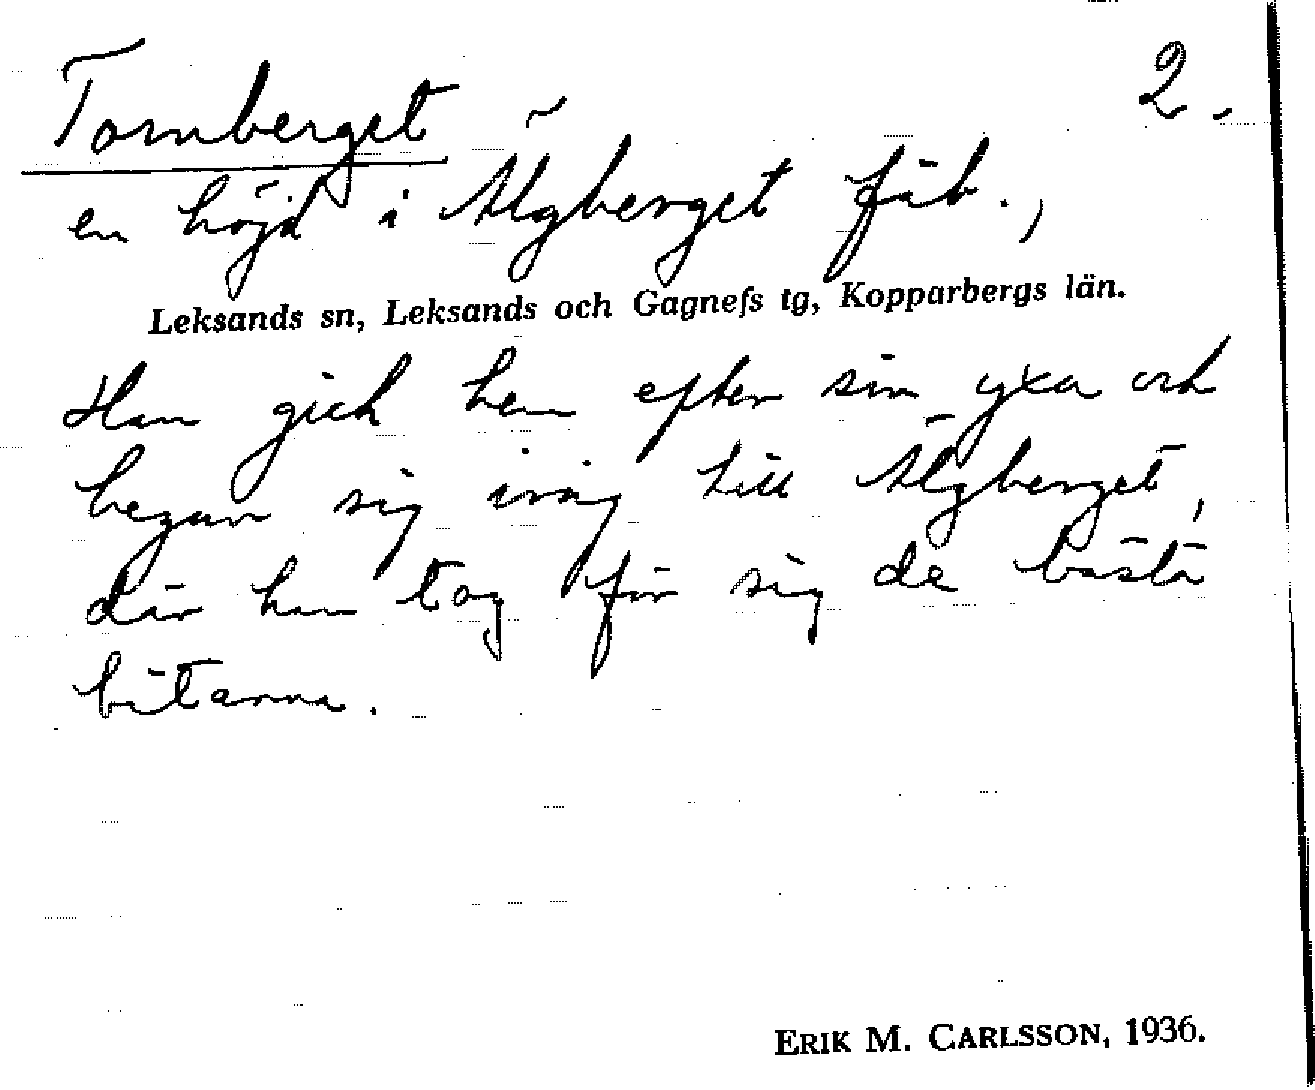 Tomberget 2.
en höjd i Älgberget fäb.,
Leksands sn, Leksands och Gagnefs tg, Kopparbergs län.
Han gick hem efter sin yxa och
begav sig iväg till Älgberget,
där han tog för sig de bästa
bitarna.
ERIK M. CARLSSON, 1936.